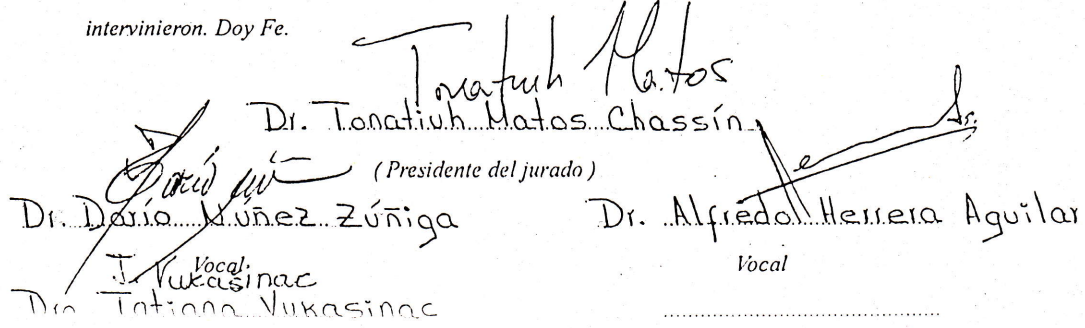 intervinieron. Doy Fe.
Tonatiuh Matos
Dr. Tonatiuh Matos Chassín
(Presidente del jurado)
Dr. Darío Núñez Zúñiga
Dr. Alfredo Herrera Aguilar
Vocal
Vocal
T. Vukasinac
Dra Tatiana Vukasinac